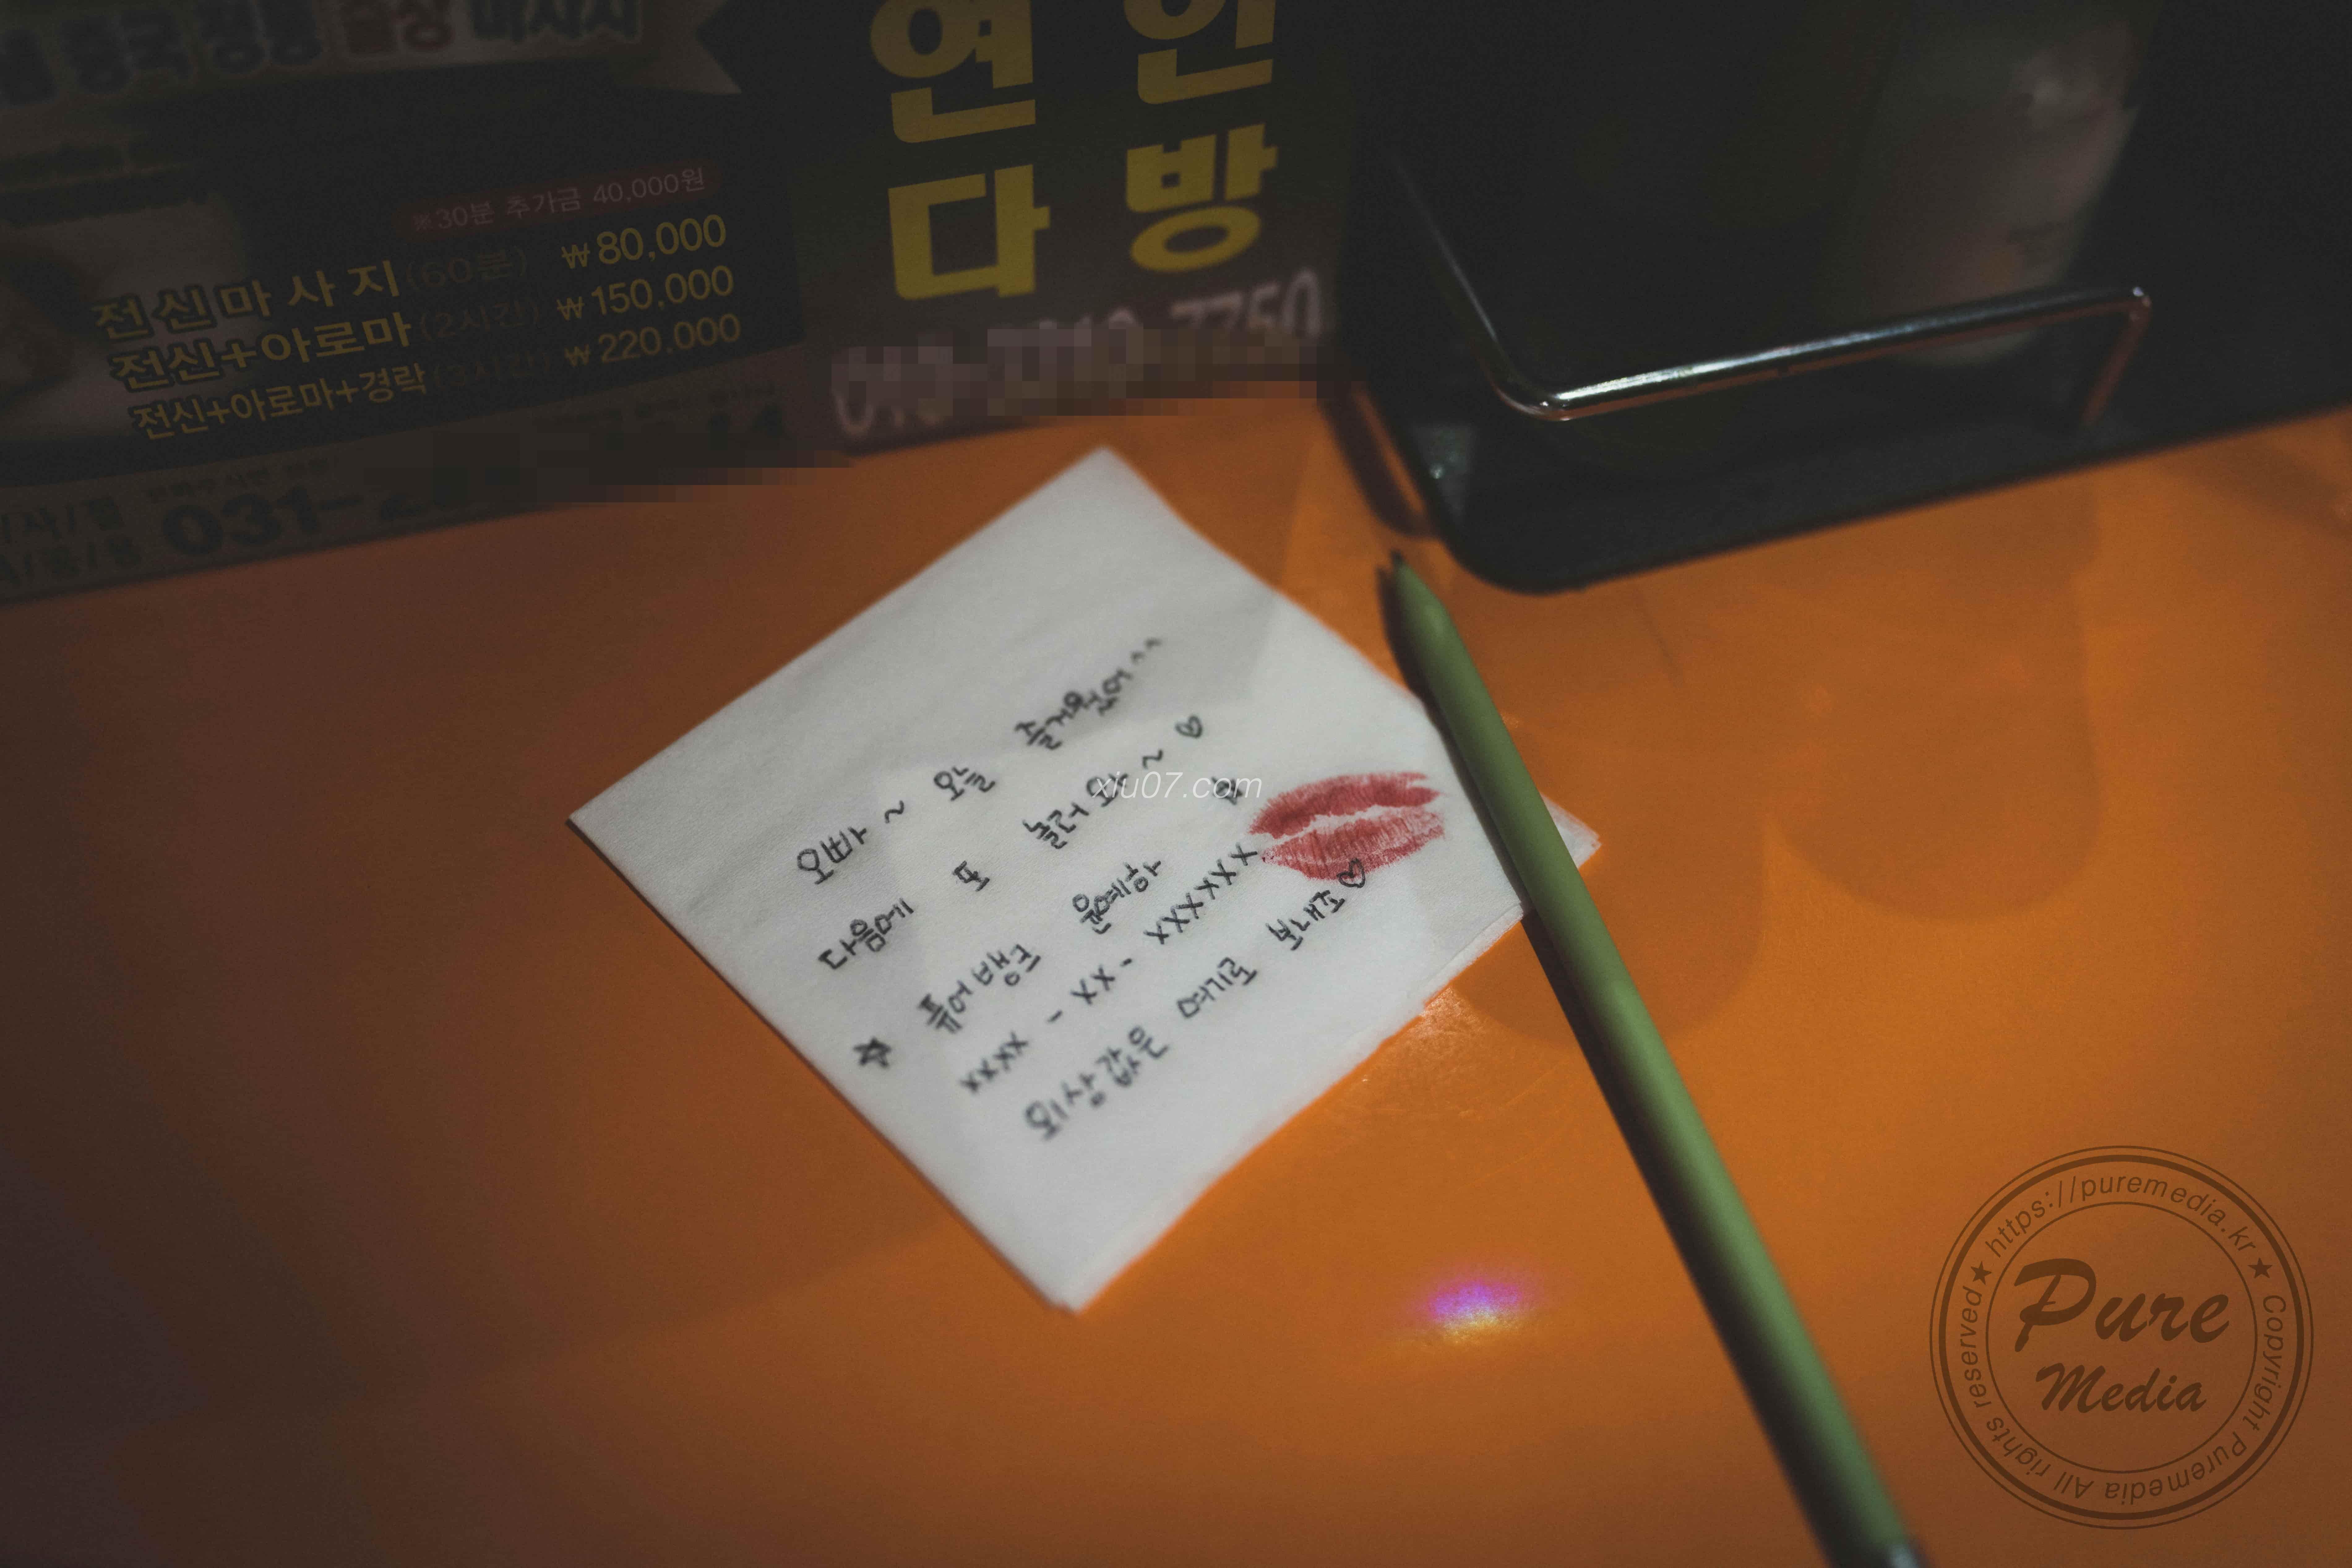 중국 정통 출장 마사지
※30분 추가금 40,000원
전신마사지(60분) ₩80,000
전신+아로마(2시간) ₩150,000
전신+아로마+경락(3시간) ₩220,000
031-
연인
다방
오빠~ 오늘 즐거웠어^^
다음에 또 놀러와~♡
☆ 퓨어뱅크 윤예하
xxxx - xx - xxxxxx
외상값은 여기로 보내조♡
xiu07.com
Pure
Media
★ https://puremedia.kr ★ Copyright Puremedia All rights reserved